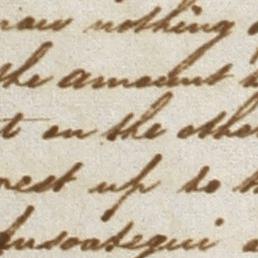 now nothing
the amount
t on the other
rest up to
Ansoategui